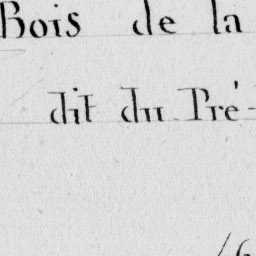 Bois de la
dit du Pré-